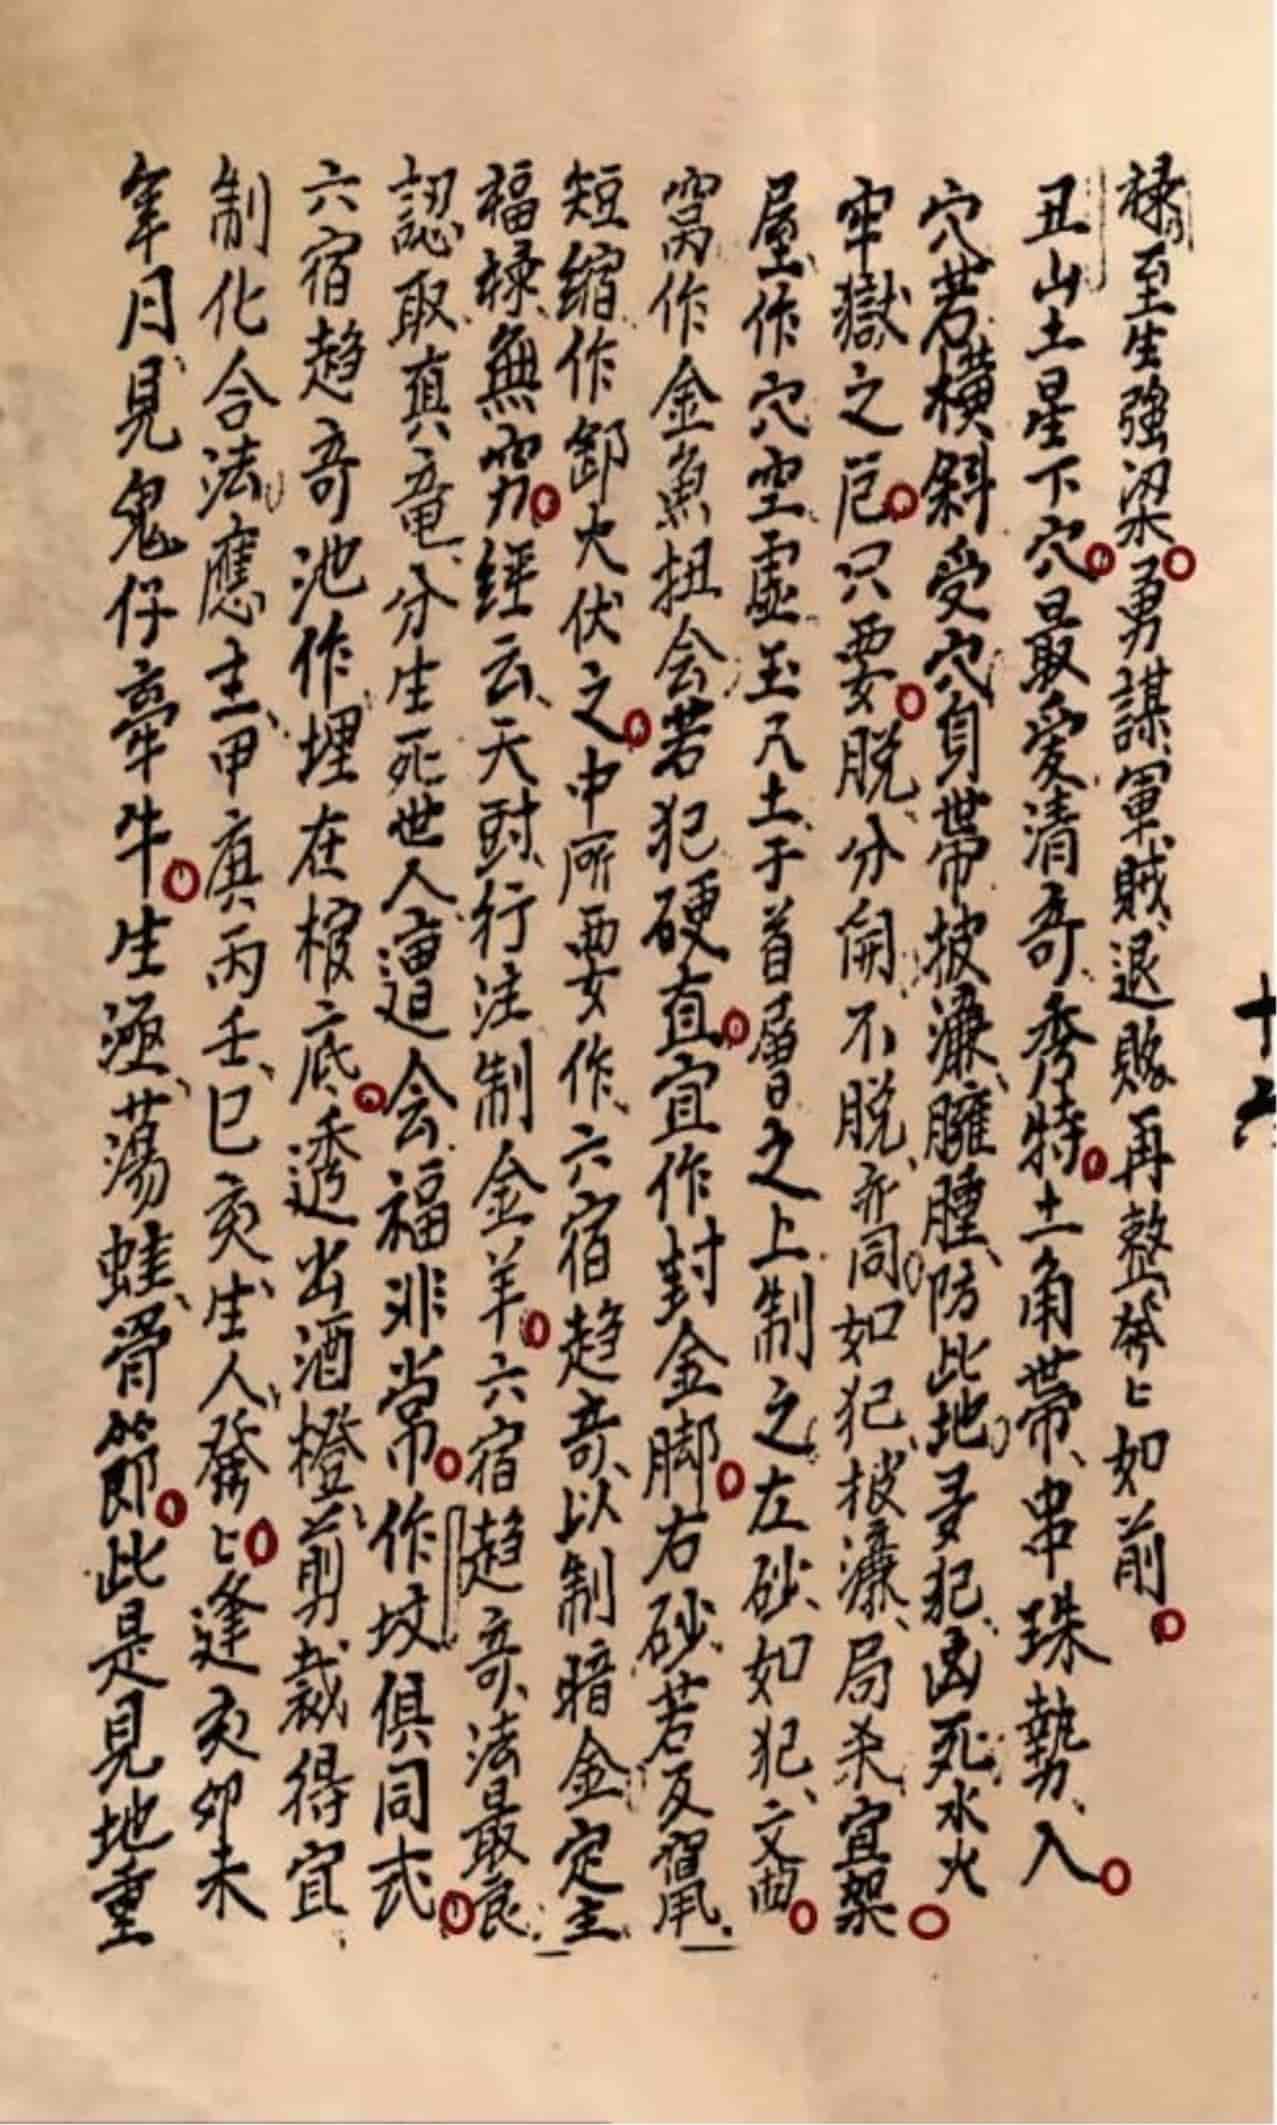 祿至生強梁勇謀軍賊退敗再整發〻如前
丑山土星下穴最爱清奇秀特土角帶串珠勢入
穴若橫斜受穴身帶披濂臃腫防此地多犯凶死水火
牢獄之厄只要脱分開不脱亦同如犯披濂局杀宜架
屋作穴空虛至凡土于首層之上制之左砂如犯文曲
窩作金魚扭会若犯硬直宜作封金脚右砂若反
短縮作卸火伏之中所要作六宿趋竒以制暗金定主
福祿無窮經云天財行注制金羊六宿趋竒法最良
認取真竜分生死世人遭会福非常作坟俱同式
六宿趋奇池作埋在棺底透出酒橙剪裁得宜
制化合法應主甲庚丙壬巳亥生人發〻逢亥卯未
年月見鬼仔牽牛生湮蕩蛙骨節此是見地重
十六